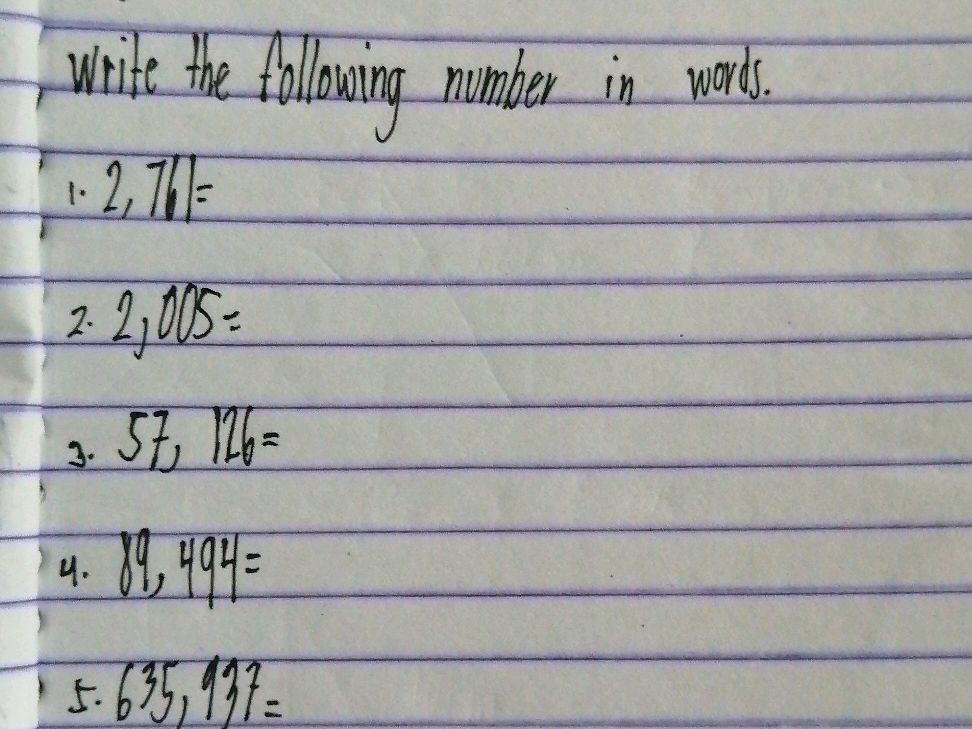 Write the following number in words.
1. 2,761=
2. 2,005=
3. 57, 126=
4. 89, 494=
5. 635,937=